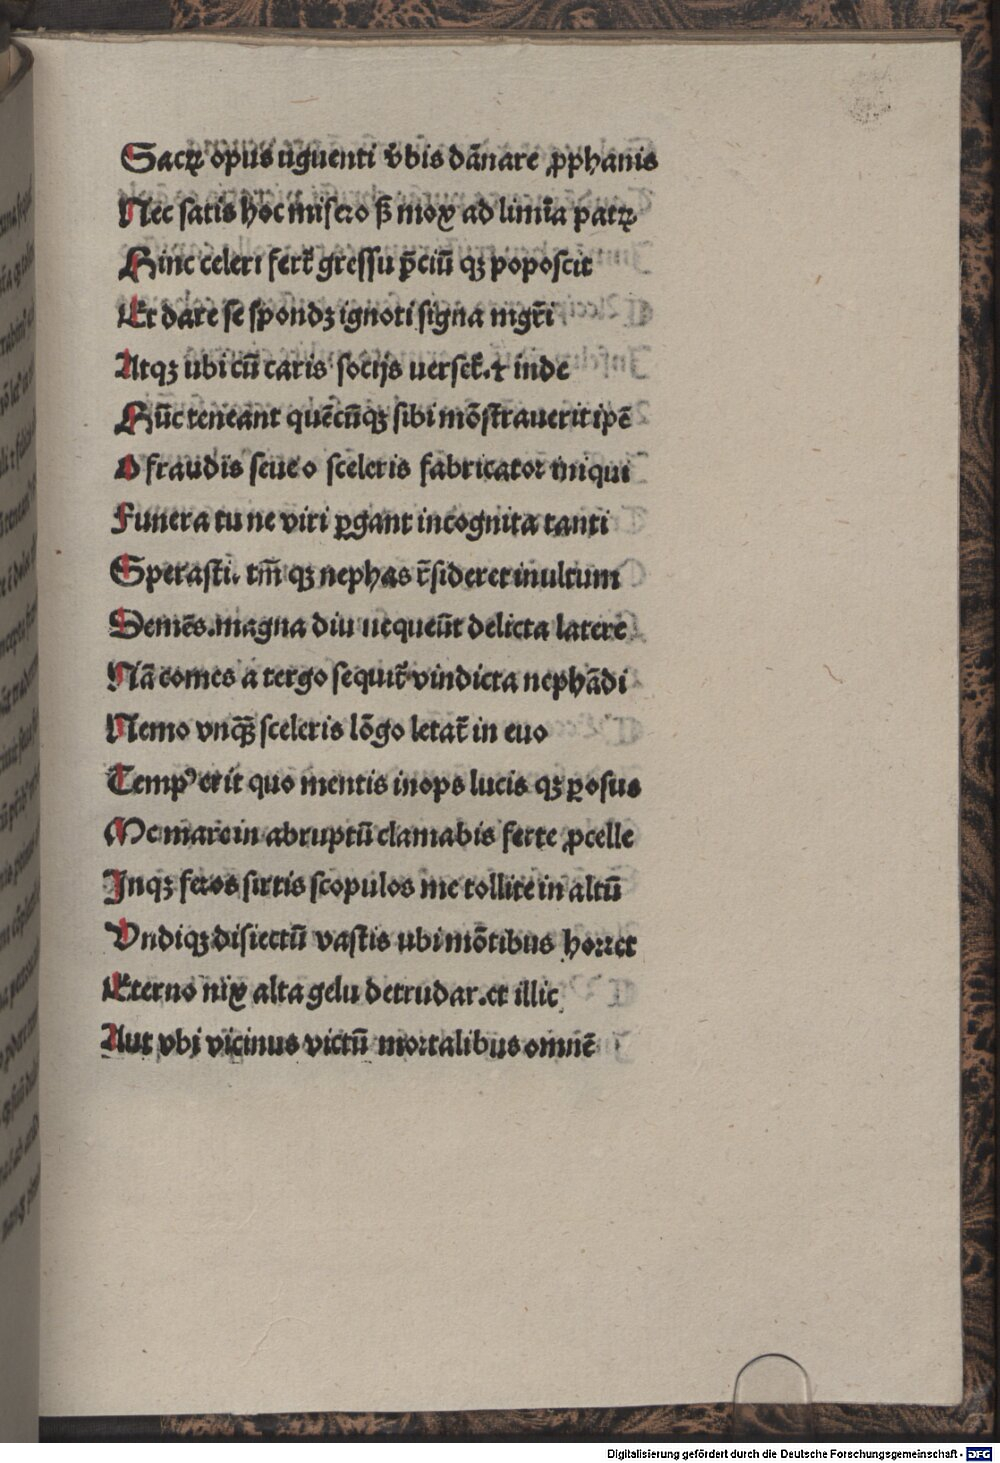 Sacꝝ opus ūguenti v̄bis dānare ꝓphanis
Nec satis hoc misero ß mox ad limīa patꝝ
Hinc celeri fert᷑ gressu p̄ciū qꝫ poposcit
Et dare se spondꝫ ignoti signa mgr̄i
Atqꝫ ubi cū caris socijs uerset᷑. ⁊ inde
Hūc teneant quēcūqꝫ sibi mōstrauerit ipē
O fraudis seue o sceleris fabricator iniqui
Funera tu ne viri ꝑgant incognita tanti
Sperasti. tm̄ qꝫ nephas r̄sideret inultum
Demēs. magna diu nequeūt delicta latere
Nā comes a tergo sequit᷑ vindicta nephādi
Nemo vnqȝ̄ sceleris lōgo letat᷑ in euo
Tempꝰ erit quo mentis inops lucis qꝫ ꝑosus
Me mare in abruptū clamabis ferte ꝓcelle
Inqꝫ feros sirtis scopulos me tollite in altū
Vndiqꝫ disiectū vastis ubi mōtibus horret
Eterno nix alta gelu detrudar. et illic
Aut vbi vicinus victū mortalibus omnē
Digitalisierung gefördert durch die Deutsche Forschungsgemeinschaft - DFG